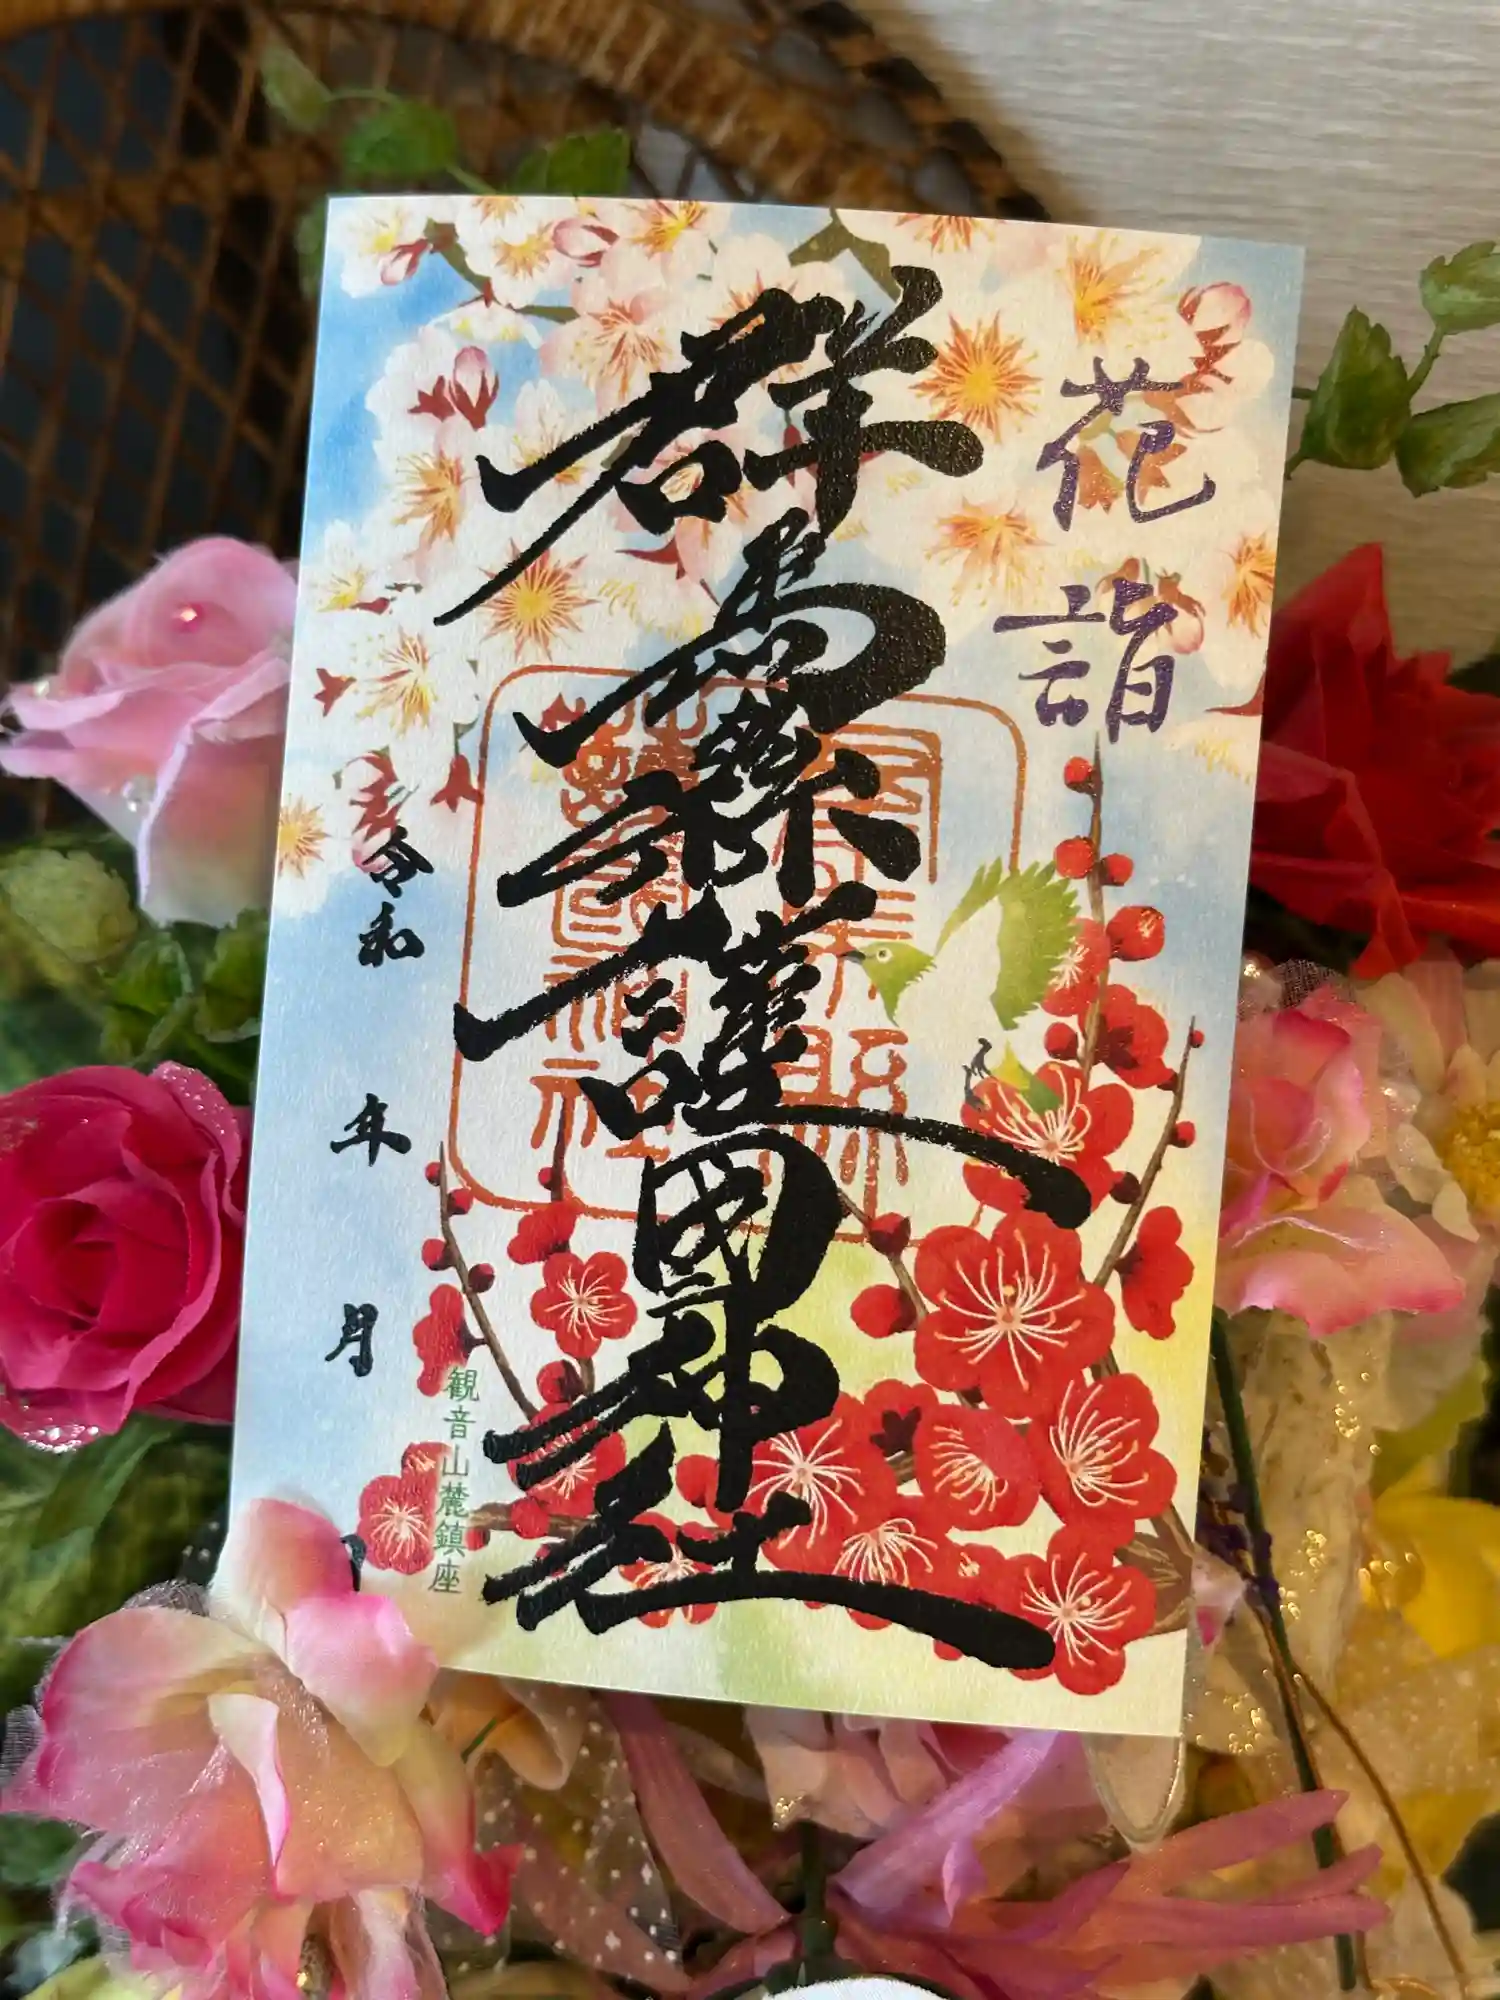 花詣
群馬縣護國神社
群馬県護国神社
観音山麓鎮座
令和 年 月